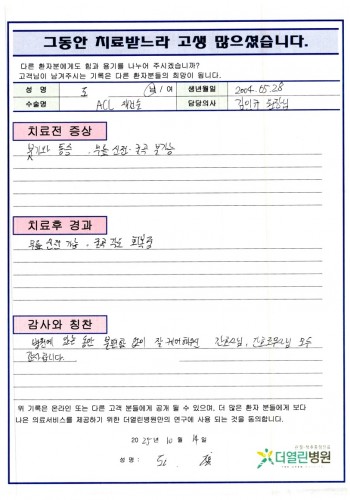 그동안 치료받느라 고생 많으셨습니다.
다른 환자분에게도 힘과 용기를 나누어 주시겠습니까?
고객님이 남겨주시는 기록은 다른 환자분들의 희망이 됩니다.
성 명 남 / 여 생년월일 2004.05.28
수술명 ACL 재건술 담당의사 원장님
치료전 증상
붓기와 통증, 무릎 신전·굴곡 불가능
치료후 경과
무릎 신전 가능, 굴곡 각도 회복중
감사와 칭찬
병원에 있는 동안 불편함 없이 잘 케어해주신 간호사님, 간호조무사님 모두
감사합니다.
위 기록은 온라인 또는 다른 고객 분들에게 공개 될 수 있으며, 더 많은 환자 분들에게 보다
나은 의료서비스를 제공하기 위한 더열린병원의 연구에 사용 되는 것을 동의합니다.
2025년 10월 14일
성 명 :
더열린병원